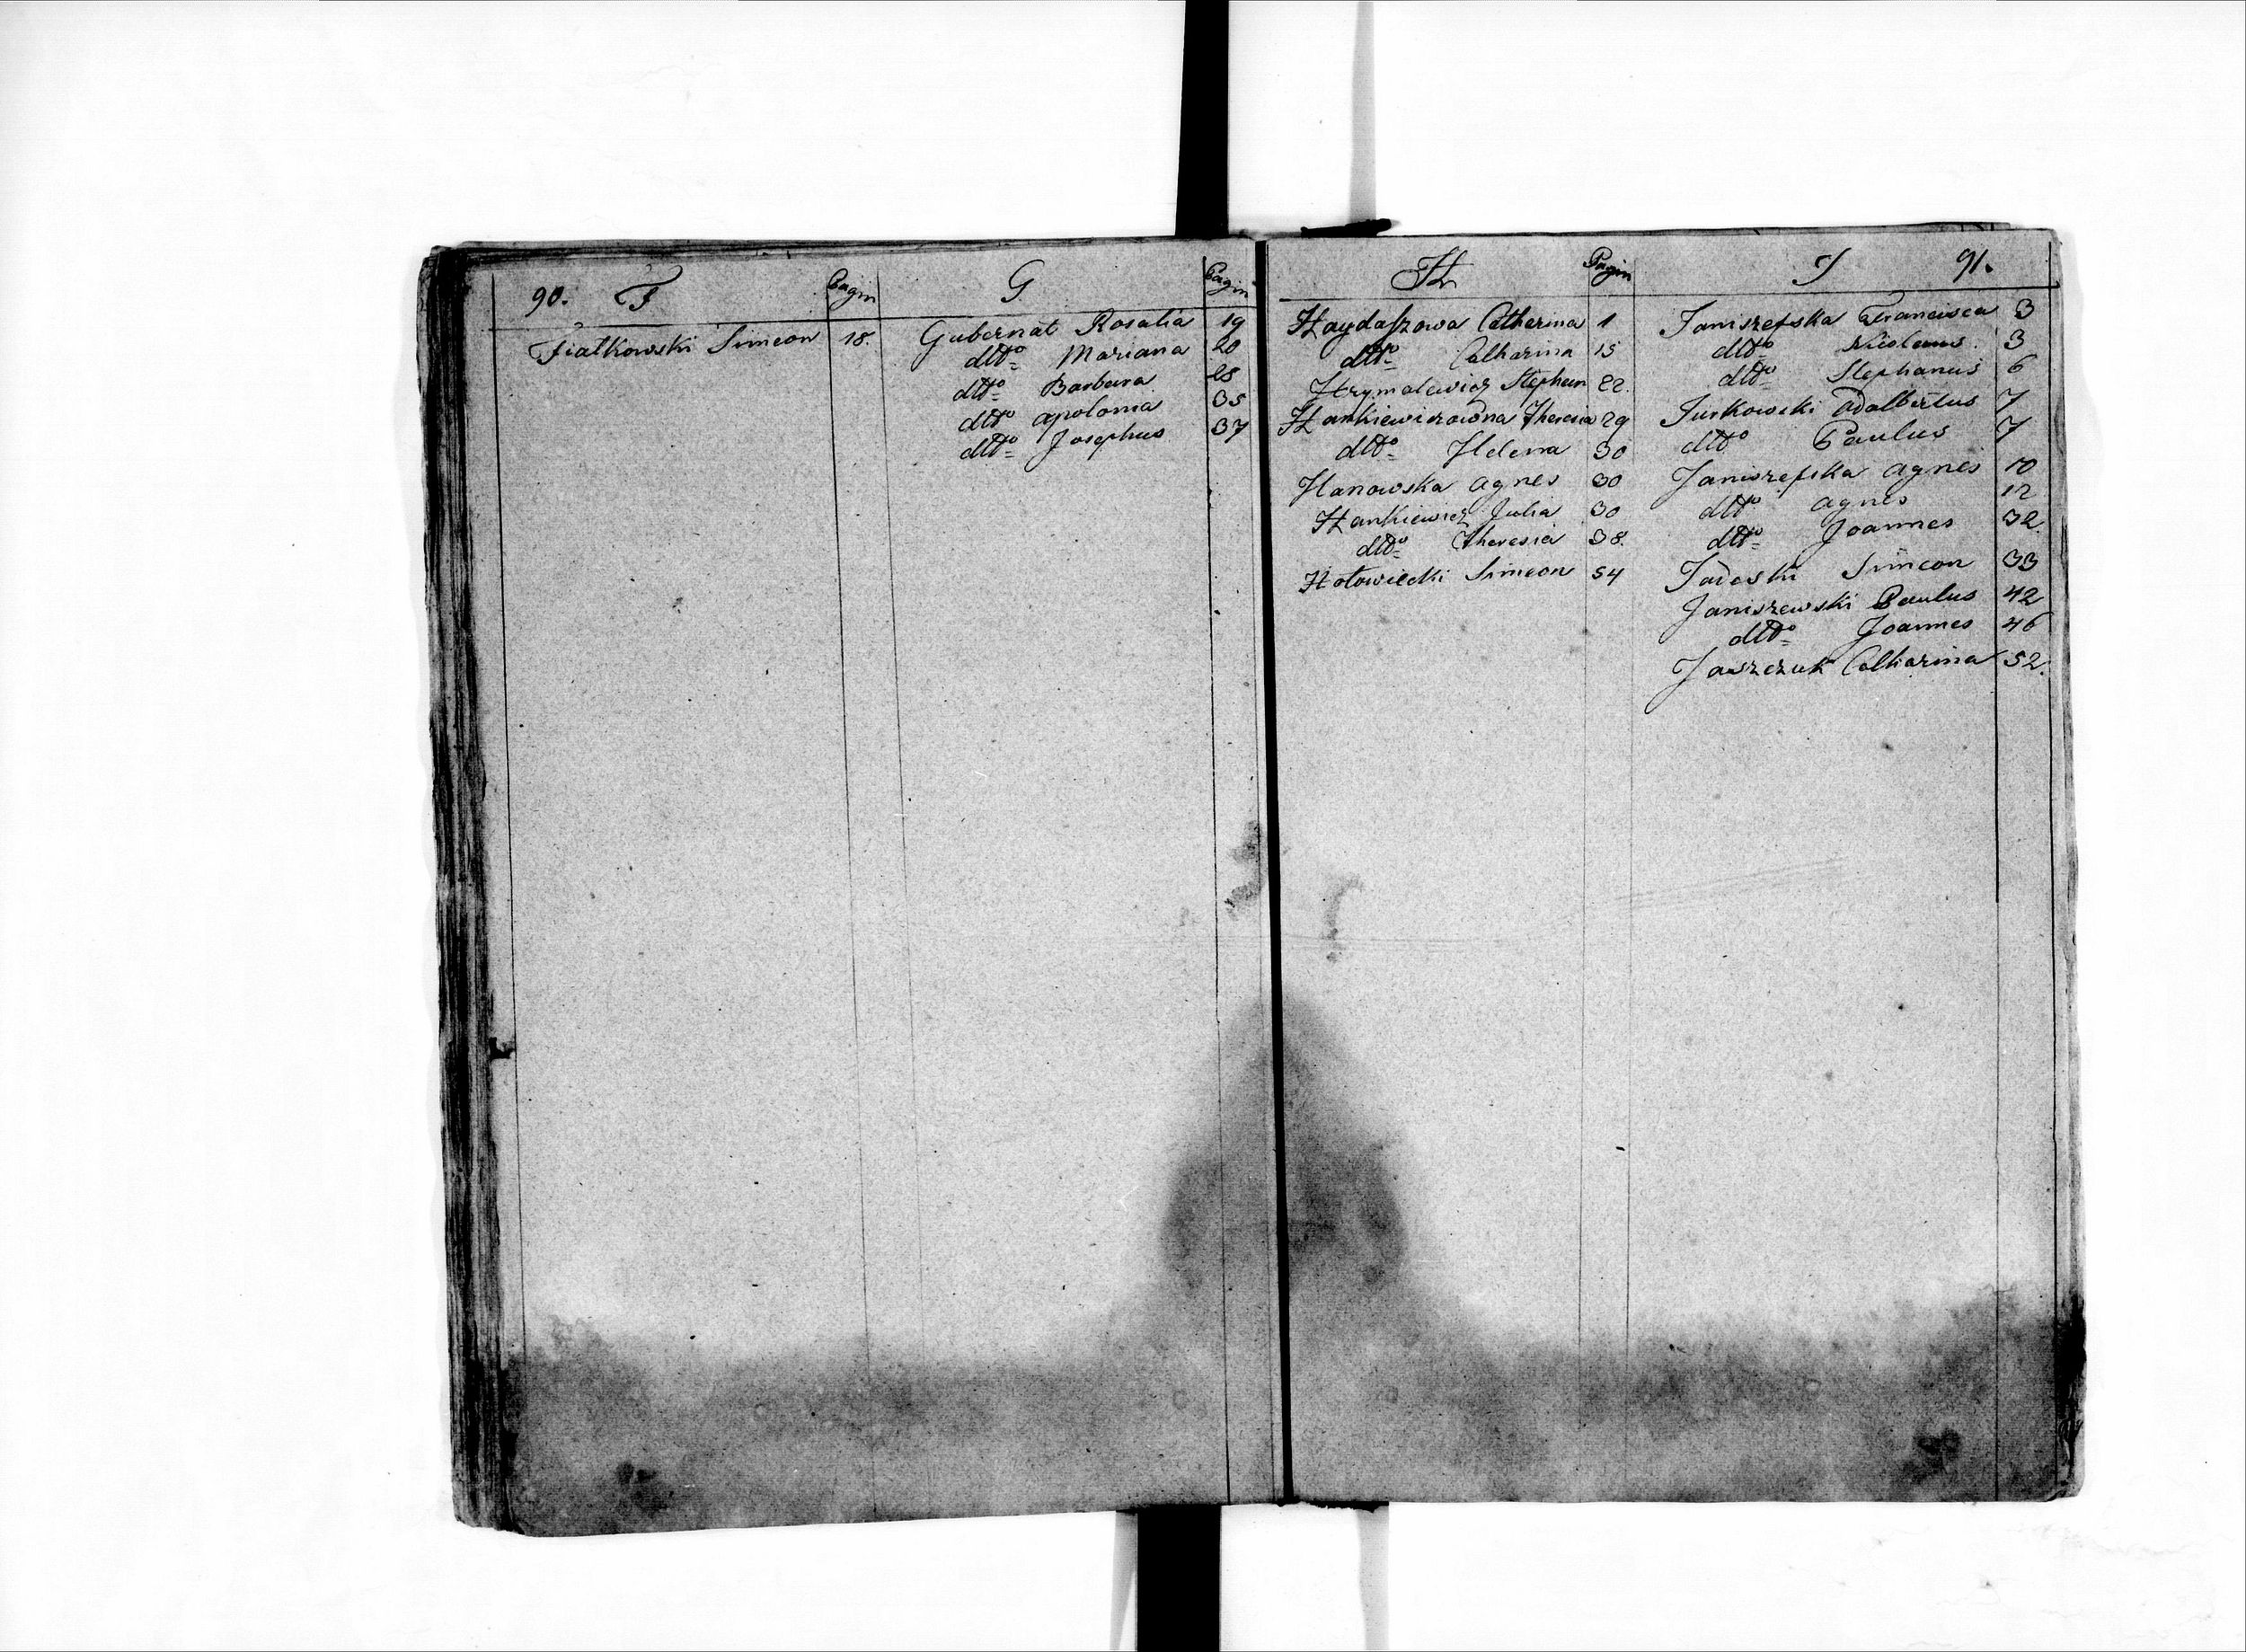 90. F Pagin
Fiatkowski Simeon 18.
G Pagin
Gubernat Rosalia 19
dtto Mariana 20
dtto Barbara 28
dtto apolonia 35
dtto Josephus 37
H Pagin
Haydaszowa Catherina 1
dtto Catharina 15
Hrymalewicz Stephan 22.
Hankiewiczowna Theresia 29
dtto Helena 30
Hanowska agnes 30
Hankiewicz Julia 30
dtto Theresia 38.
Hotowiecki Simeon 54
I 91.
Janiszefska Francisca 3
dtto Nicolaus. 3
dtto Stephanus 6
Jurkowski Adalbertus 7
dtto Paulus 7
Janiszefska agnes 10
dtto agnes 12
dtto Joannes 32.
Simeon 33
Janiszewski Paulus 42
dtto Joannes 46
Jaszczuk Catharina 52.